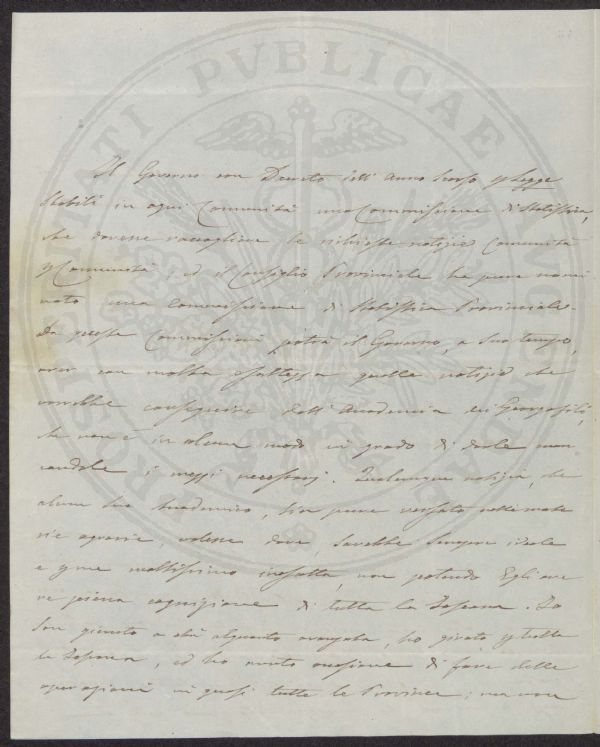 PROSPERITATI PVBLICAE AVGENDAE
Il Governo con Decreto dell' Anno scorso p Legge
Stabilì in ogni Comunità una Commissione di Statistica,
che dovesse raccogliere le richieste notizie Comunità
p Comunità, ed il Consiglio Provinciale ha pure nomi
nato una Commissione di Statistica Provinciale.
Da queste Commissioni potrà il Governo, a suo tempo,
aver con molta esattezza quelle notizie che
vorrebbe conseguire dall' Accademia dei Georgofili,
che non è in alcun modo in grado di darle man
candole i mezzi necessarj. Qualunque notizia, che
alcun suo Accademico, sia pure versato nelle mate
rie agrarie, volesse dare, sarebbe sempre ideale
e p me moltissimo inesatta, non potendo Egli ave
re piena cognizione di tutta la Toscana. Io
son giunto a età alquanto avanzata, ho girato p tutta
la Toscana, ed ho avuto occasione di fare delle
operazioni in quasi tutte le Province; ma non